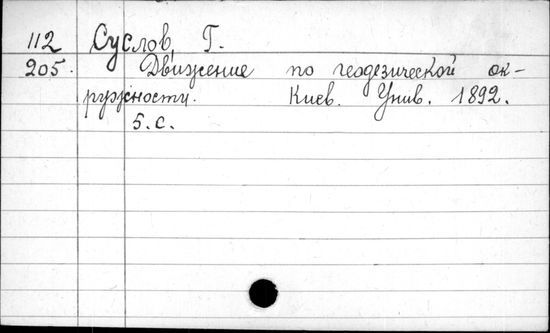 112 Суслов, Г.
205. Движение по геодезической ок-
ружности. Киев. Унив. 1892.
5. с.